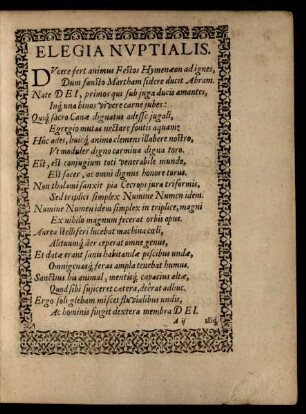 ELEGIA NVPTIALIS.
DVcere fert animus Festos Hymenæon ad ignes,
Dum fausto Martham sidere ducit Abram.
Nate DEI, primos qui sub juga ducis amantes,
Inq́ una binos vivere carne jubes:
Quiq́ sacro Canæ dignatus adesse jugali,
Egregio mutas nectare fontis aquam:
Huc ades, huicq́ animo clemens illabere nostro,
Vt moduler digno carmina digna toro.
Est, est conjugium toti venerabile mundo,
Est sacer, ac omni dignus honore torus.
Non thalami sanxit pia Cecropis jura triformis,
Sed triplici simplex Numine Numen idem.
Numine Numen idem simplex in triplice, magni
Ex nihilo magnum fecerat orbis opus.
Aurea stelliferi lucebat machina cœli,
Alituumq́ aër ceperat omne genus,
Et datæ erant sanis habitandæ piscibus undæ,
Omnigenasq́ feras ampla tenebat humus.
Sanctius his animal, mentisq́ capacius altæ,
Quod sibi subjiceret cætera, deerat adhuc.
Ergo soli glebam miscet fluvialibus undis,
Ac hominis fingit dextera membra DEI.
A ij